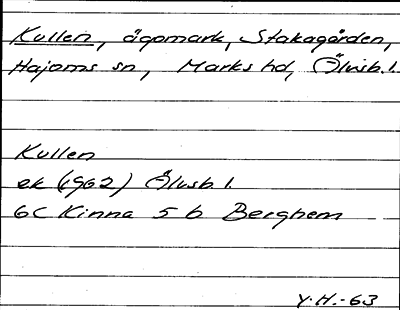 Kullen, ägomark, Stakagården,
Hajoms sn, Marks hd, Älvsb. l.
Kullen
ek (1962) Älvsb l.
6C Kinna 5 b Berghem
Y.H.-63